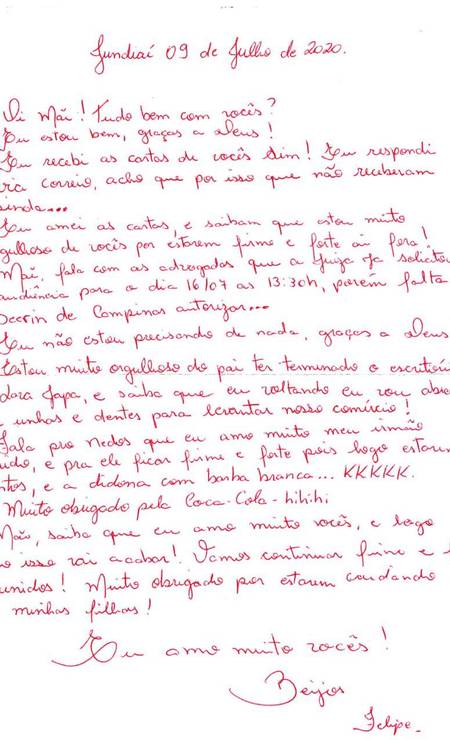 Jundiaí 09 de Julho de 2020.
Oi Mãe! Tudo bem com vocês?
Eu estou bem, graças a Deus!
Eu recebi as cartas de vocês sim! Eu respondi
correio, acho que por isso que não receberam
ainda...
Eu amei as cartas, e saibam que estou muito
gulhoso de vocês por estarem firme e forte ai fora!
Mãe, fala com as advogadas que a Juíza já solicitou
audiência para o dia 16/07 as 13:30h, porém falta
Deecrin de Campinas autorizar...
Eu não estou precisando de nada, graças a Deus
Estou muito orgulhoso do pai ter terminado o escritóri
dora Japa, e saiba que eu voltando eu vou
unhas e dentes para levantar nosso comércio!
Fala pro Nedos que eu amo muito meu irmão
udo, e pra ele ficar firme e forte pois logo estarem
ntos, e a didona com barba branca... KKKKK.
Muito obrigado pela Coca-Cola - hihihi
Mãe, saiba que eu amo muito vocês, e logo
o isso vai acabar! Vamos continuar firme e
unidos! Muito obrigado por estarem cuidando
minhas filhas!
Eu amo muito vocês!
Beijos
Felipe.